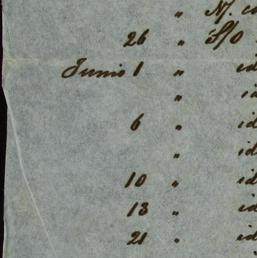 " N/. 
26 " S/O
Junio 1 " id
" id
6 " id
" id
10 " id
13 " id
21 " id